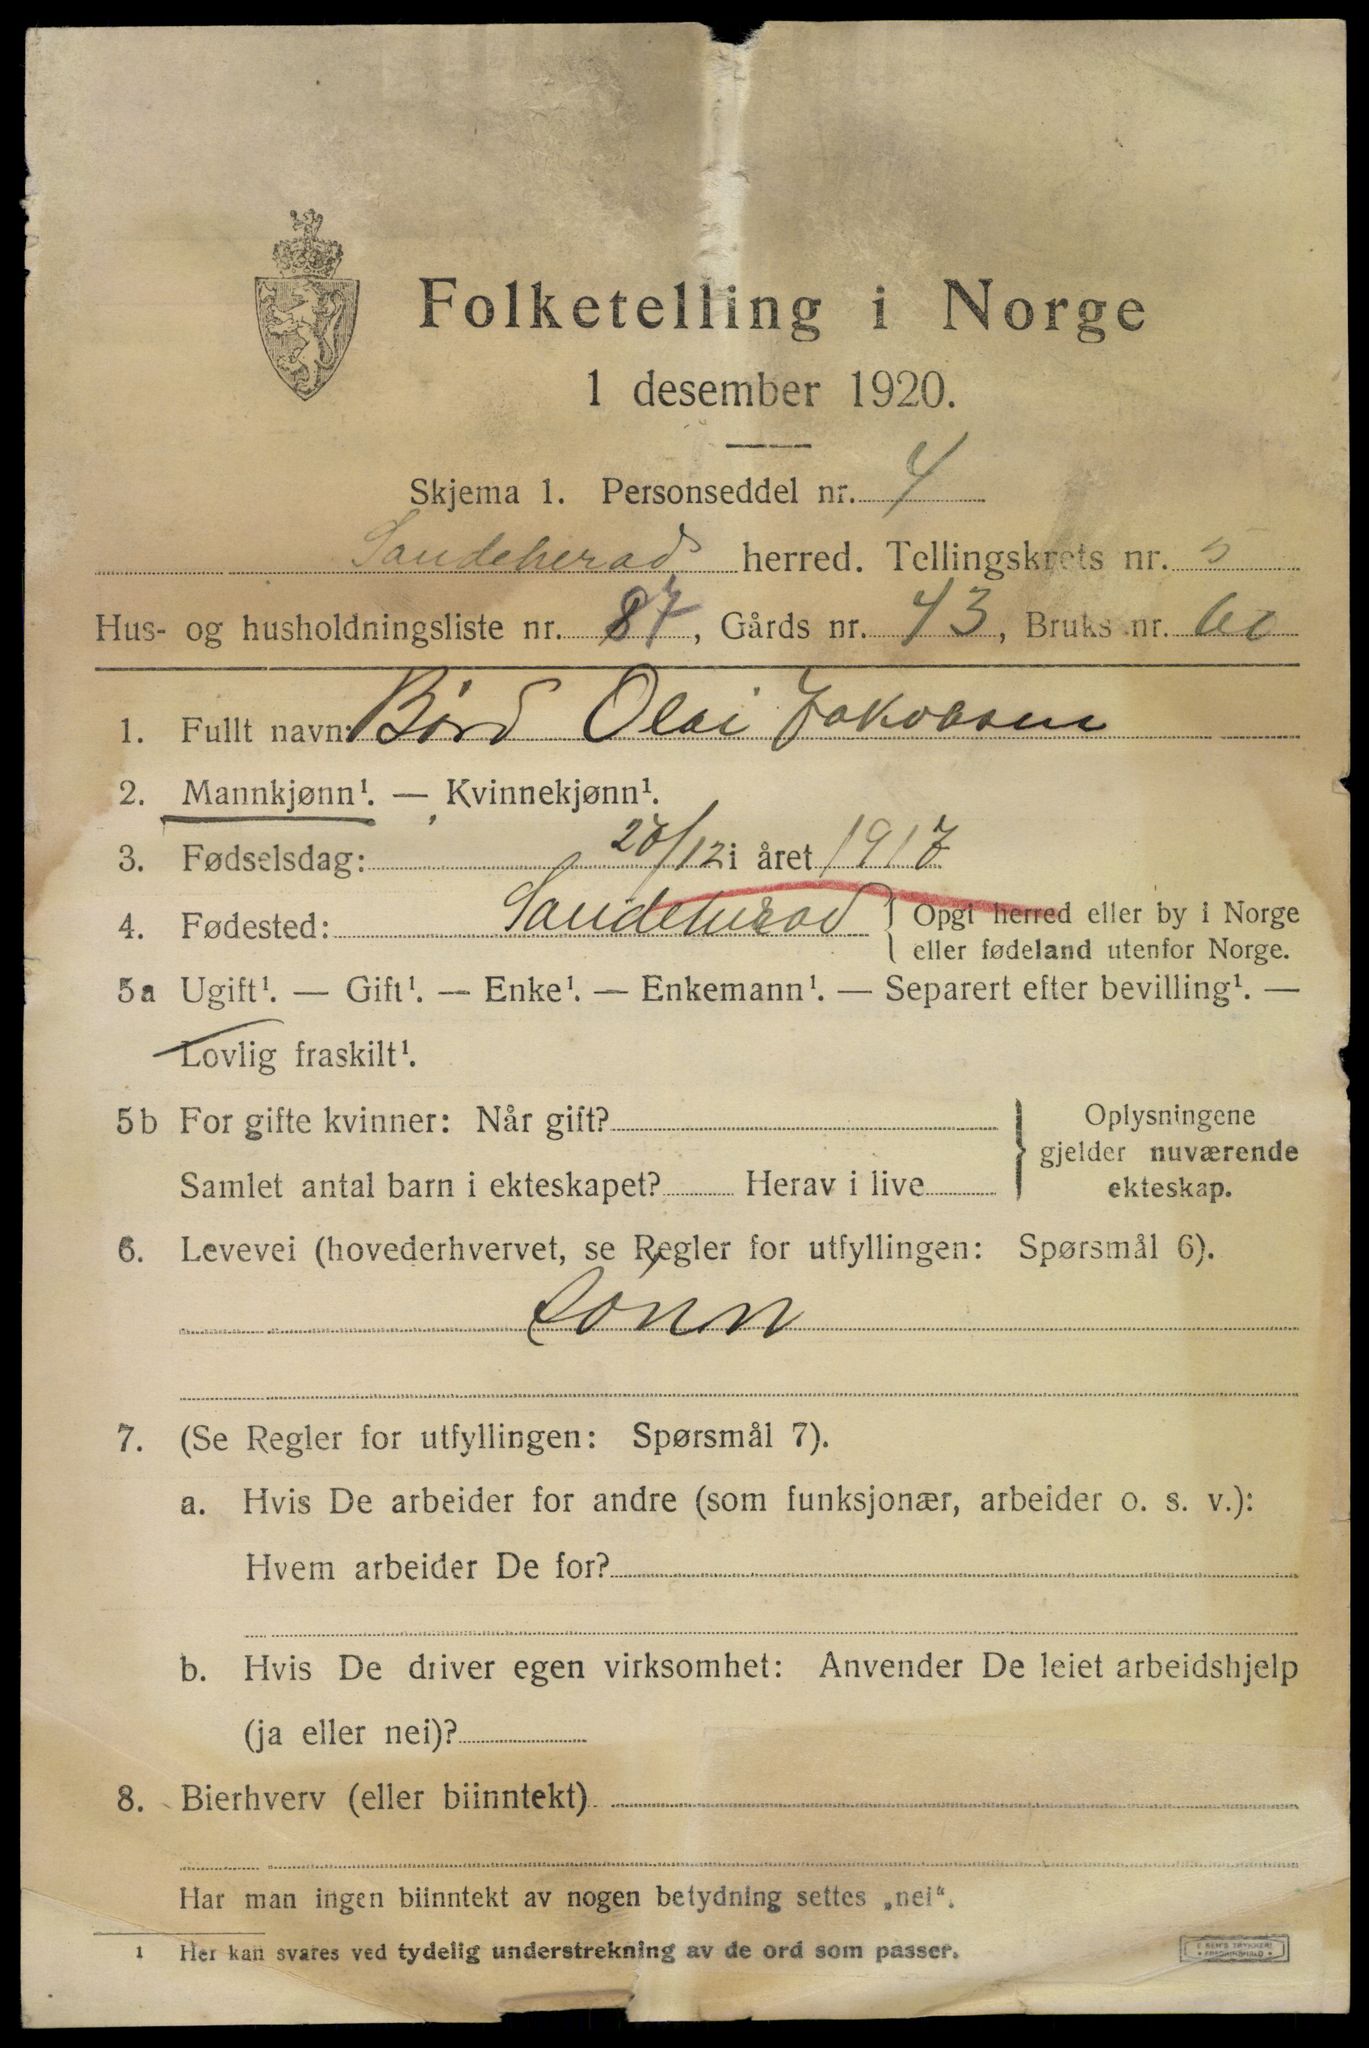 Folketelling i Norge
1 desember 1920.
Skjema 1. Personseddel nr. 4
Sandeherad herred. Tellingskrets nr. 5
Hus- og husholdningsliste nr. 87, Gårds nr. 43, Bruks nr. 60
1. Fullt navn: Bård Olai Jakobsen
2. Mannkjønn¹. — Kvinnekjønn¹.
3. Fødselsdag: /12 i året 1917
4. Fødested: Sandeherad { Opgi herred eller by i Norge
eller fødeland utenfor Norge.
5a Ugift¹. — Gift¹. — Enke¹. — Enkemann¹. — Separert efter bevilling¹. —
Lovlig fraskilt¹.
5b For gifte kvinner: Når gift?
Samlet antal barn i ekteskapet? Herav i live
} Oplysningene
gjelder nuværende
ekteskap.
6. Levevei (hovederhvervet, se Regler for utfyllingen: Spørsmål 6).
sønn
7. (Se Regler for utfyllingen: Spørsmål 7).
a. Hvis De arbeider for andre (som funksjonær, arbeider o. s. v.):
Hvem arbeider De for?
b. Hvis De driver egen virksomhet: Anvender De leiet arbeidshjelp
(ja eller nei)?
8. Bierhverv (eller biinntekt)
Har man ingen biinntekt av nogen betydning settes „nei“.
1 Her kan svares ved tydelig understrekning av de ord som passer.
E. SEM'S TRYKKERI
• FREDRIKSHALD •